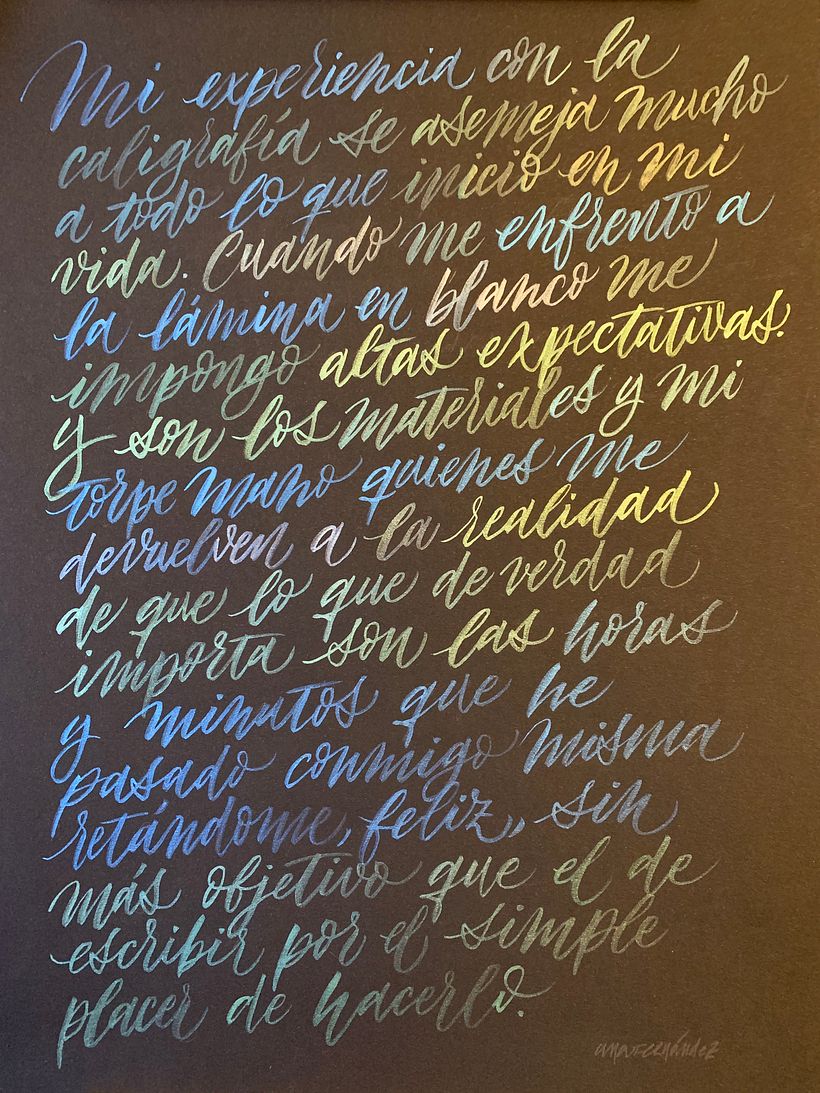 Mi experiencia con la
caligrafía se asemeja mucho
a todo lo que inicio en mi
vida. Cuando me enfrento a
la lámina en blanco me
impongo altas expectativas.
y son los materiales y mi
torpe mano quienes me
devuelven a la realidad
de que lo que de verdad
importa son las horas
y minutos que he
pasado conmigo misma
retándome, feliz, sin
más objetivo que el de
escribir por el simple
placer de hacerlo.
ana fernández